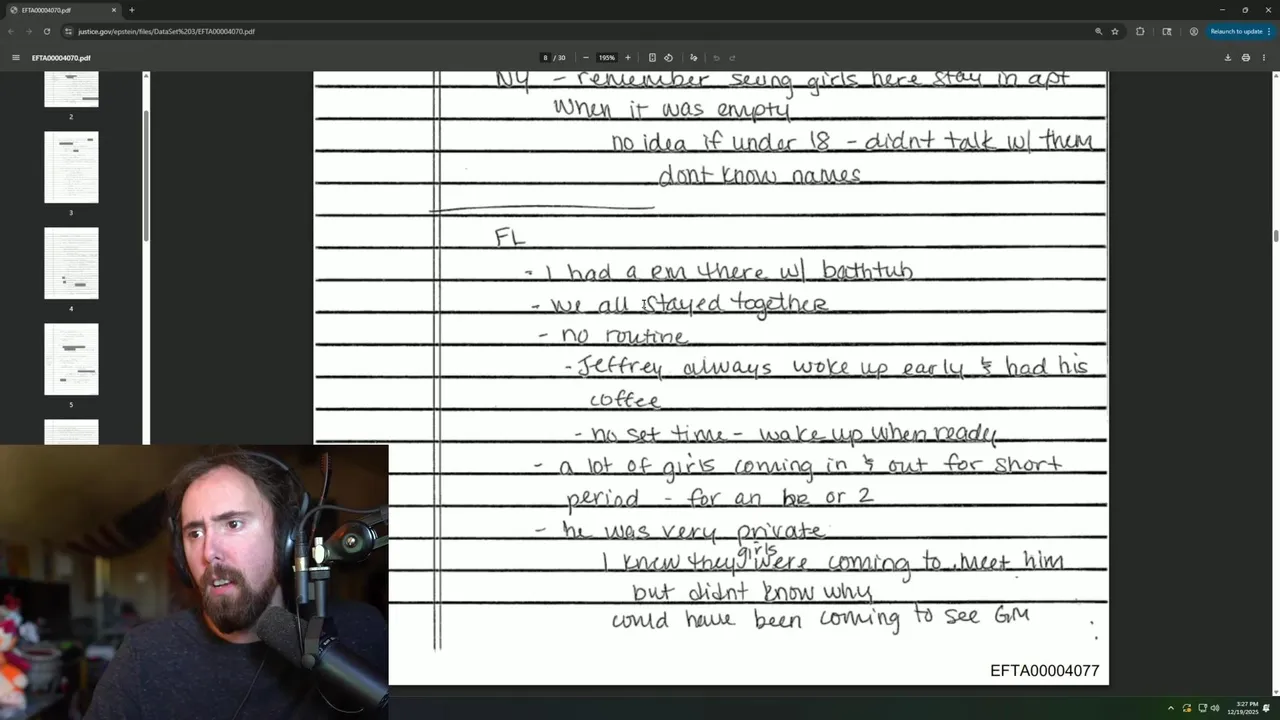 EFTA00004070.pdf
justice.gov/epstein/files/DataSet%203/EFTA00004070.pdf
Relaunch to update
EFTA00004070.pdf
8 / 30
195%
- remember seeing girls here stay in apt
when it was empty
no idea if under 18 - didnt talk w/ them
dont know names
FL
- I had a rm there w/ bathtub
- we all stayed together
- no routine
- Jeffrey always woke up early & had his
coffee
- no set time - woke up when ready
- a lot of girls coming in & out for short
period - for an hr or 2
- he was very private
girls
I knew they were coming to meet him
but didnt know why
could have been coming to see GM
EFTA00004077
2
3
4
5
3:27 PM
12/19/2025